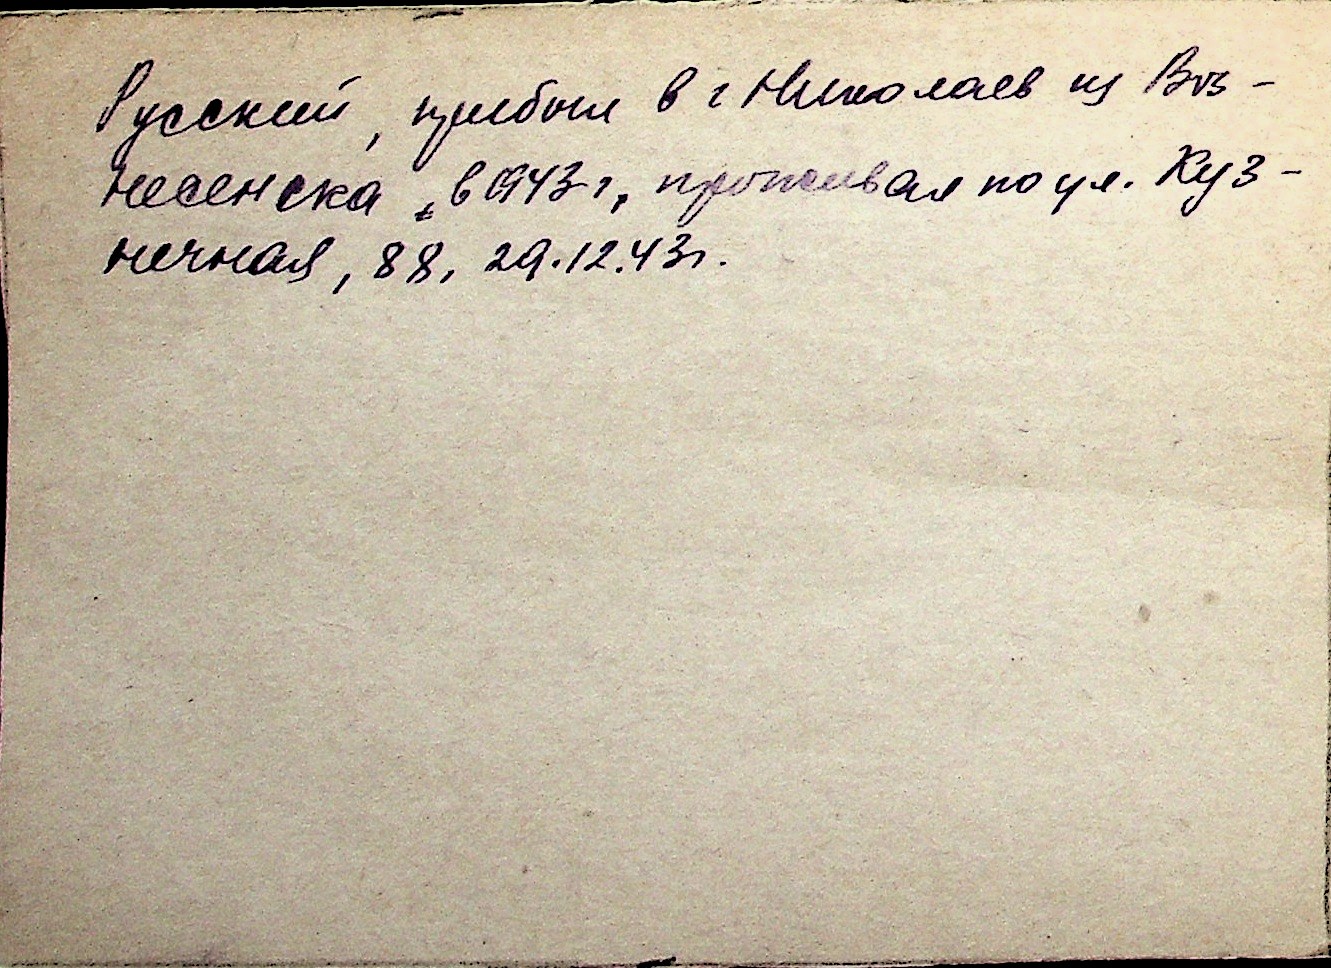 Русский, прибыл в г Николаев из Воз-
несенска, в 1943 г, проживал по ул. Куз-
нечная, 88, 29.12.43г.